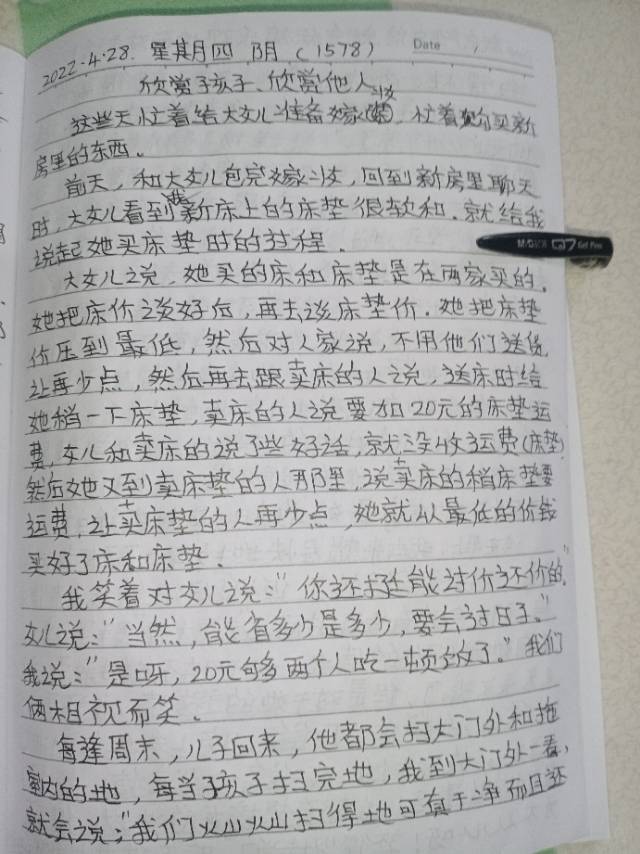 2022.4.28. 星期四 阴 (1578) Date
欣赏孩子、欣赏他人
这些天忙着给大女儿准备嫁妆, 忙着购买新
房里的东西。
前天, 和大女儿包完嫁妆, 回到新房里聊天
时, 大女儿看到我新床上的床垫很软和. 就给我
说起她买床垫时的过程.
大女儿说, 她买的床和床垫是在两家买的.
她把床价谈好后, 再去谈床垫价. 她把床垫
价压到最低, 然后对人家说, 不用他们送货
让再少点, 然后再去跟卖床的人说, 送床时给
她稍一下床垫, 卖床的人说要加20元的床垫运
费, 女儿和卖床的说了些好话, 就没收运费(床垫)
然后她又到卖床垫的人那里, 说卖床的稍床垫要
运费, 让卖床垫的人再少点, 她就以最低的价钱
买好了床和床垫.
我笑着对女儿说:"你还挺能讨价还价的."
女儿说:"当然, 能省多少是多少, 要会过日子."
我说:"是呀, 20元够两个人吃一顿饭了." 我们
俩相视而笑.
每逢周末, 儿子回来, 他都会扫大门外和拖
室内的地, 每当孩子扫完地, 我到大门外一看,
就会说:"我们火山火山扫得地可真干净而且还
M&G Q7 Gel Pen